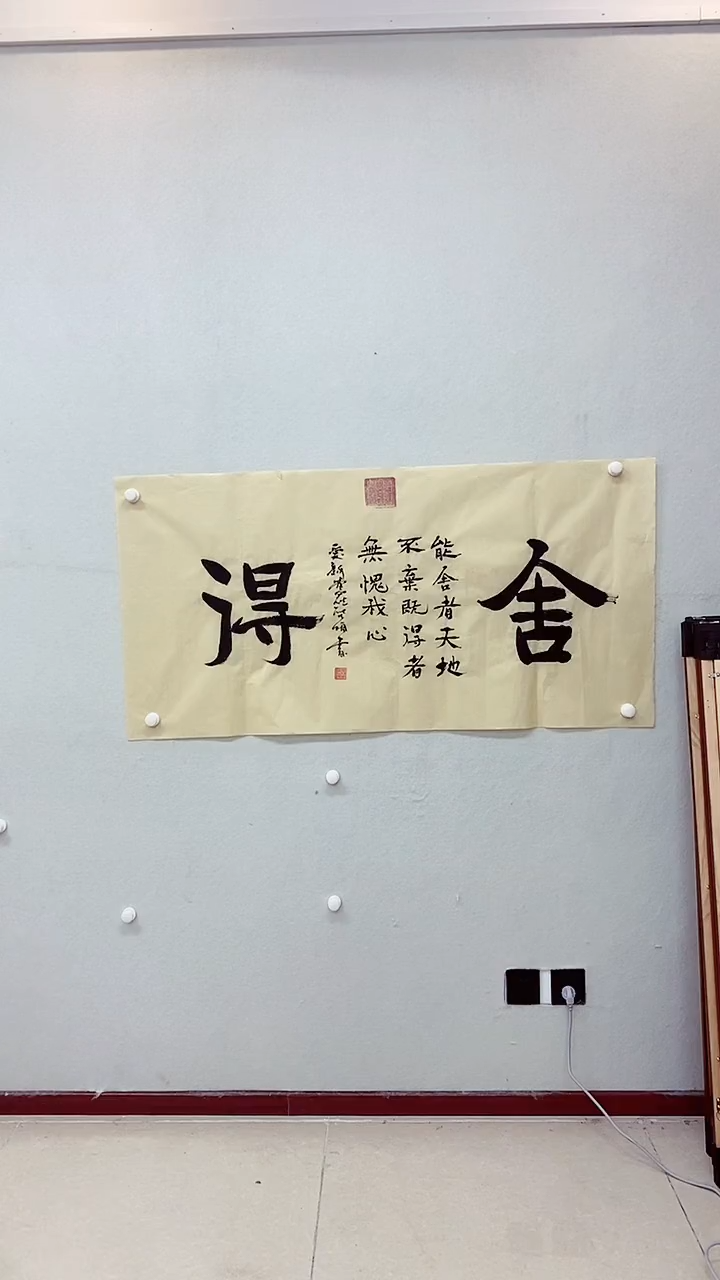 舍
能舍者天地
不棄既得者
無愧我心
愛新覺羅
書
得